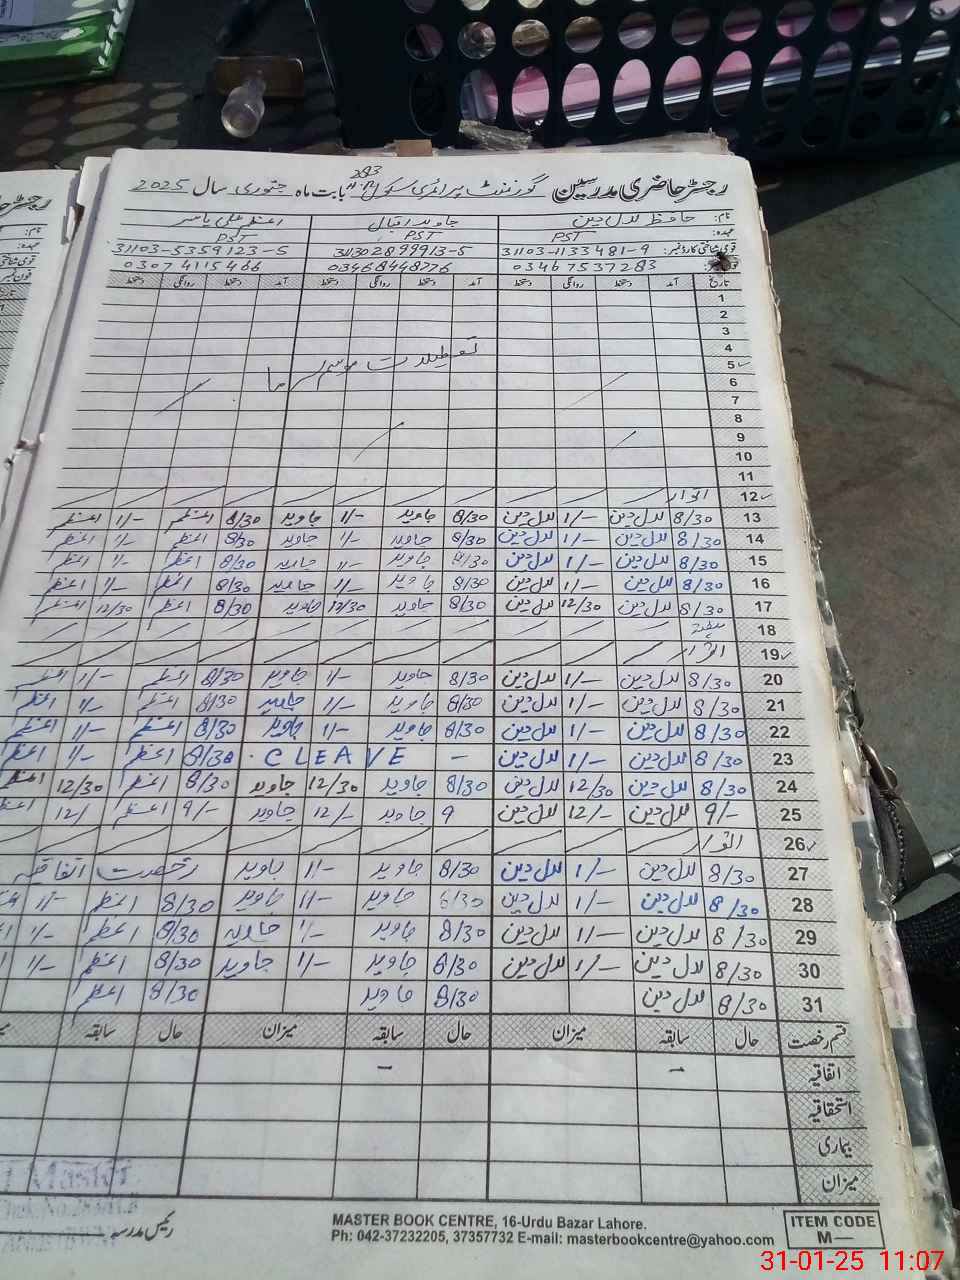 رجسٹر حاضری مدرسین گورنمنٹ پرائمری سکول 283 بابت ماہ جنوری سال 2025
نام: حافظ لال دین جاوید اقبال اعظم علی یاسر
عہدہ: PST PST PST
قومی شناختی کارڈ نمبر: 31103-1133481-9 311302899913-5 31103-5359123-5
03467537283 03468448776 03074115466
تاریخ آمد دستخط روانگی دستخط آمد دستخط روانگی دستخط آمد دستخط روانگی دستخط
1
2
3
4 تعطیلات موسم سرما
5
6
7
8
9
10
11
12 اتوار
13 8/30 لال دین 1/- لال دین 8/30 جاوید 1/- جاوید 8/30 اعظم 1/- اعظم
14 8/30 لال دین 1/- لال دین 8/30 جاوید 1/- جاوید 8/30 اعظم 1/- اعظم
15 8/30 لال دین 1/- لال دین 8/30 جاوید 1/- جاوید 8/30 اعظم 1/- اعظم
16 8/30 لال دین 1/- لال دین 8/30 جاوید 1/- جاوید 8/30 اعظم 1/- اعظم
17 8/30 لال دین 12/30 لال دین 8/30 جاوید 12/30 جاوید 8/30 اعظم 12/30 اعظم
18 ہفتہ
19 اتوار
20 8/30 لال دین 1/- لال دین 8/30 جاوید 1/- جاوید 8/30 اعظم 1/- اعظم
21 8/30 لال دین 1/- لال دین 8/30 جاوید 1/- جاوید 8/30 اعظم 1/- اعظم
22 8/30 لال دین 1/- لال دین 8/30 جاوید 1/- جاوید 8/30 اعظم 1/- اعظم
23 8/30 لال دین 1/- لال دین - C LEAVE 8/30 اعظم 1/- اعظم
24 8/30 لال دین 12/30 لال دین 8/30 جاوید 12/30 جاوید 8/30 اعظم 12/30 اعظم
25 9/- لال دین 12/- لال دین 9 جاوید 12/- جاوید 9/- اعظم 12/ اعظم
26 اتوار
27 8/30 لال دین 1/- لال دین 8/30 جاوید 1/- جاوید رخصت اتفاقیہ
28 8/30 لال دین 1/- لال دین 8/30 جاوید 1/- جاوید 8/30 اعظم 1/-
29 8/30 لال دین 1/- لال دین 8/30 جاوید 1/- جاوید 8/30 اعظم 1/-
30 8/30 لال دین 1/- لال دین 8/30 جاوید 1/- جاوید 8/30 اعظم 1/-
31 8/30 لال دین 8/30 جاوید 8/30 اعظم
قسم رخصت حال سابقہ میزان حال سابقہ میزان حال سابقہ
اتفاقیہ - -
استحقاقیہ
بیماری
میزان
رئیس مدرسہ
MASTER BOOK CENTRE, 16-Urdu Bazar Lahore.
Ph: 042-37232205, 37357732 E-mail: masterbookcentre@yahoo.com
ITEM CODE
M—
31-01-25 11:07